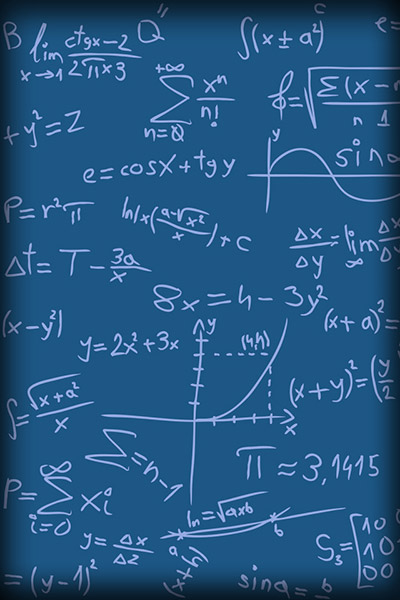 B lim x→1 ctgx-2 / 2πx3
Q"
∫(x±a²)
c
e=
+∞ Σ n=0 xⁿ/n!
ϕ=√Σ(x-n / n 1
+y²=Z
y
e=cosx+tgy
sina
P=r²π
ln/x(a-√x²/x)+c
Δx/Δy=lim ∞ Δx/Δy
Δt=T-3a/x
8x=4-3y²
(x-y²)
(x+a)²=
y
y=2x²+3x
(4,4)
(x+y)²=(y/2
∫=√x+a²/x
x
Σ=n-1
π≈3,1415
P=∞Σi=0 xi
ln=√axb
a
b
y=Δx/Δz
(x+y)
S₃=[10
10
00
=(y-1)²
sina=b